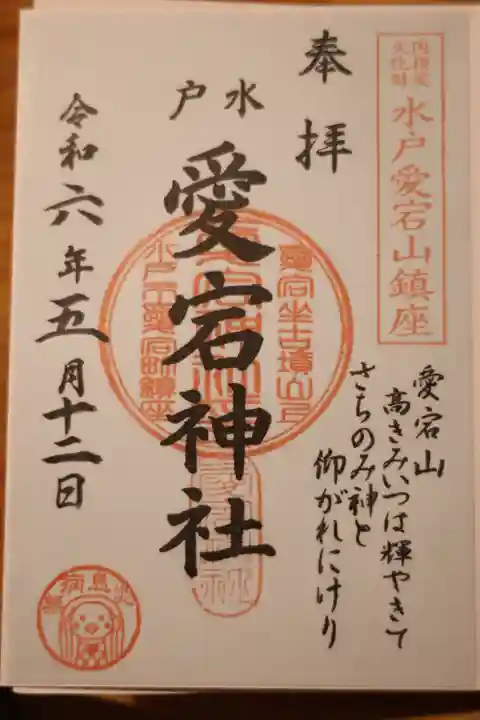 国指定
文化財
水戸愛宕山鎮座
奉拝
愛宕山
高きみいつは輝やきて
さちのみ神と
仰がれにけり
水戸
愛宕神社
令和六年五月十二日
愛宕坐古墳山上
水戸市愛宕町鎮座